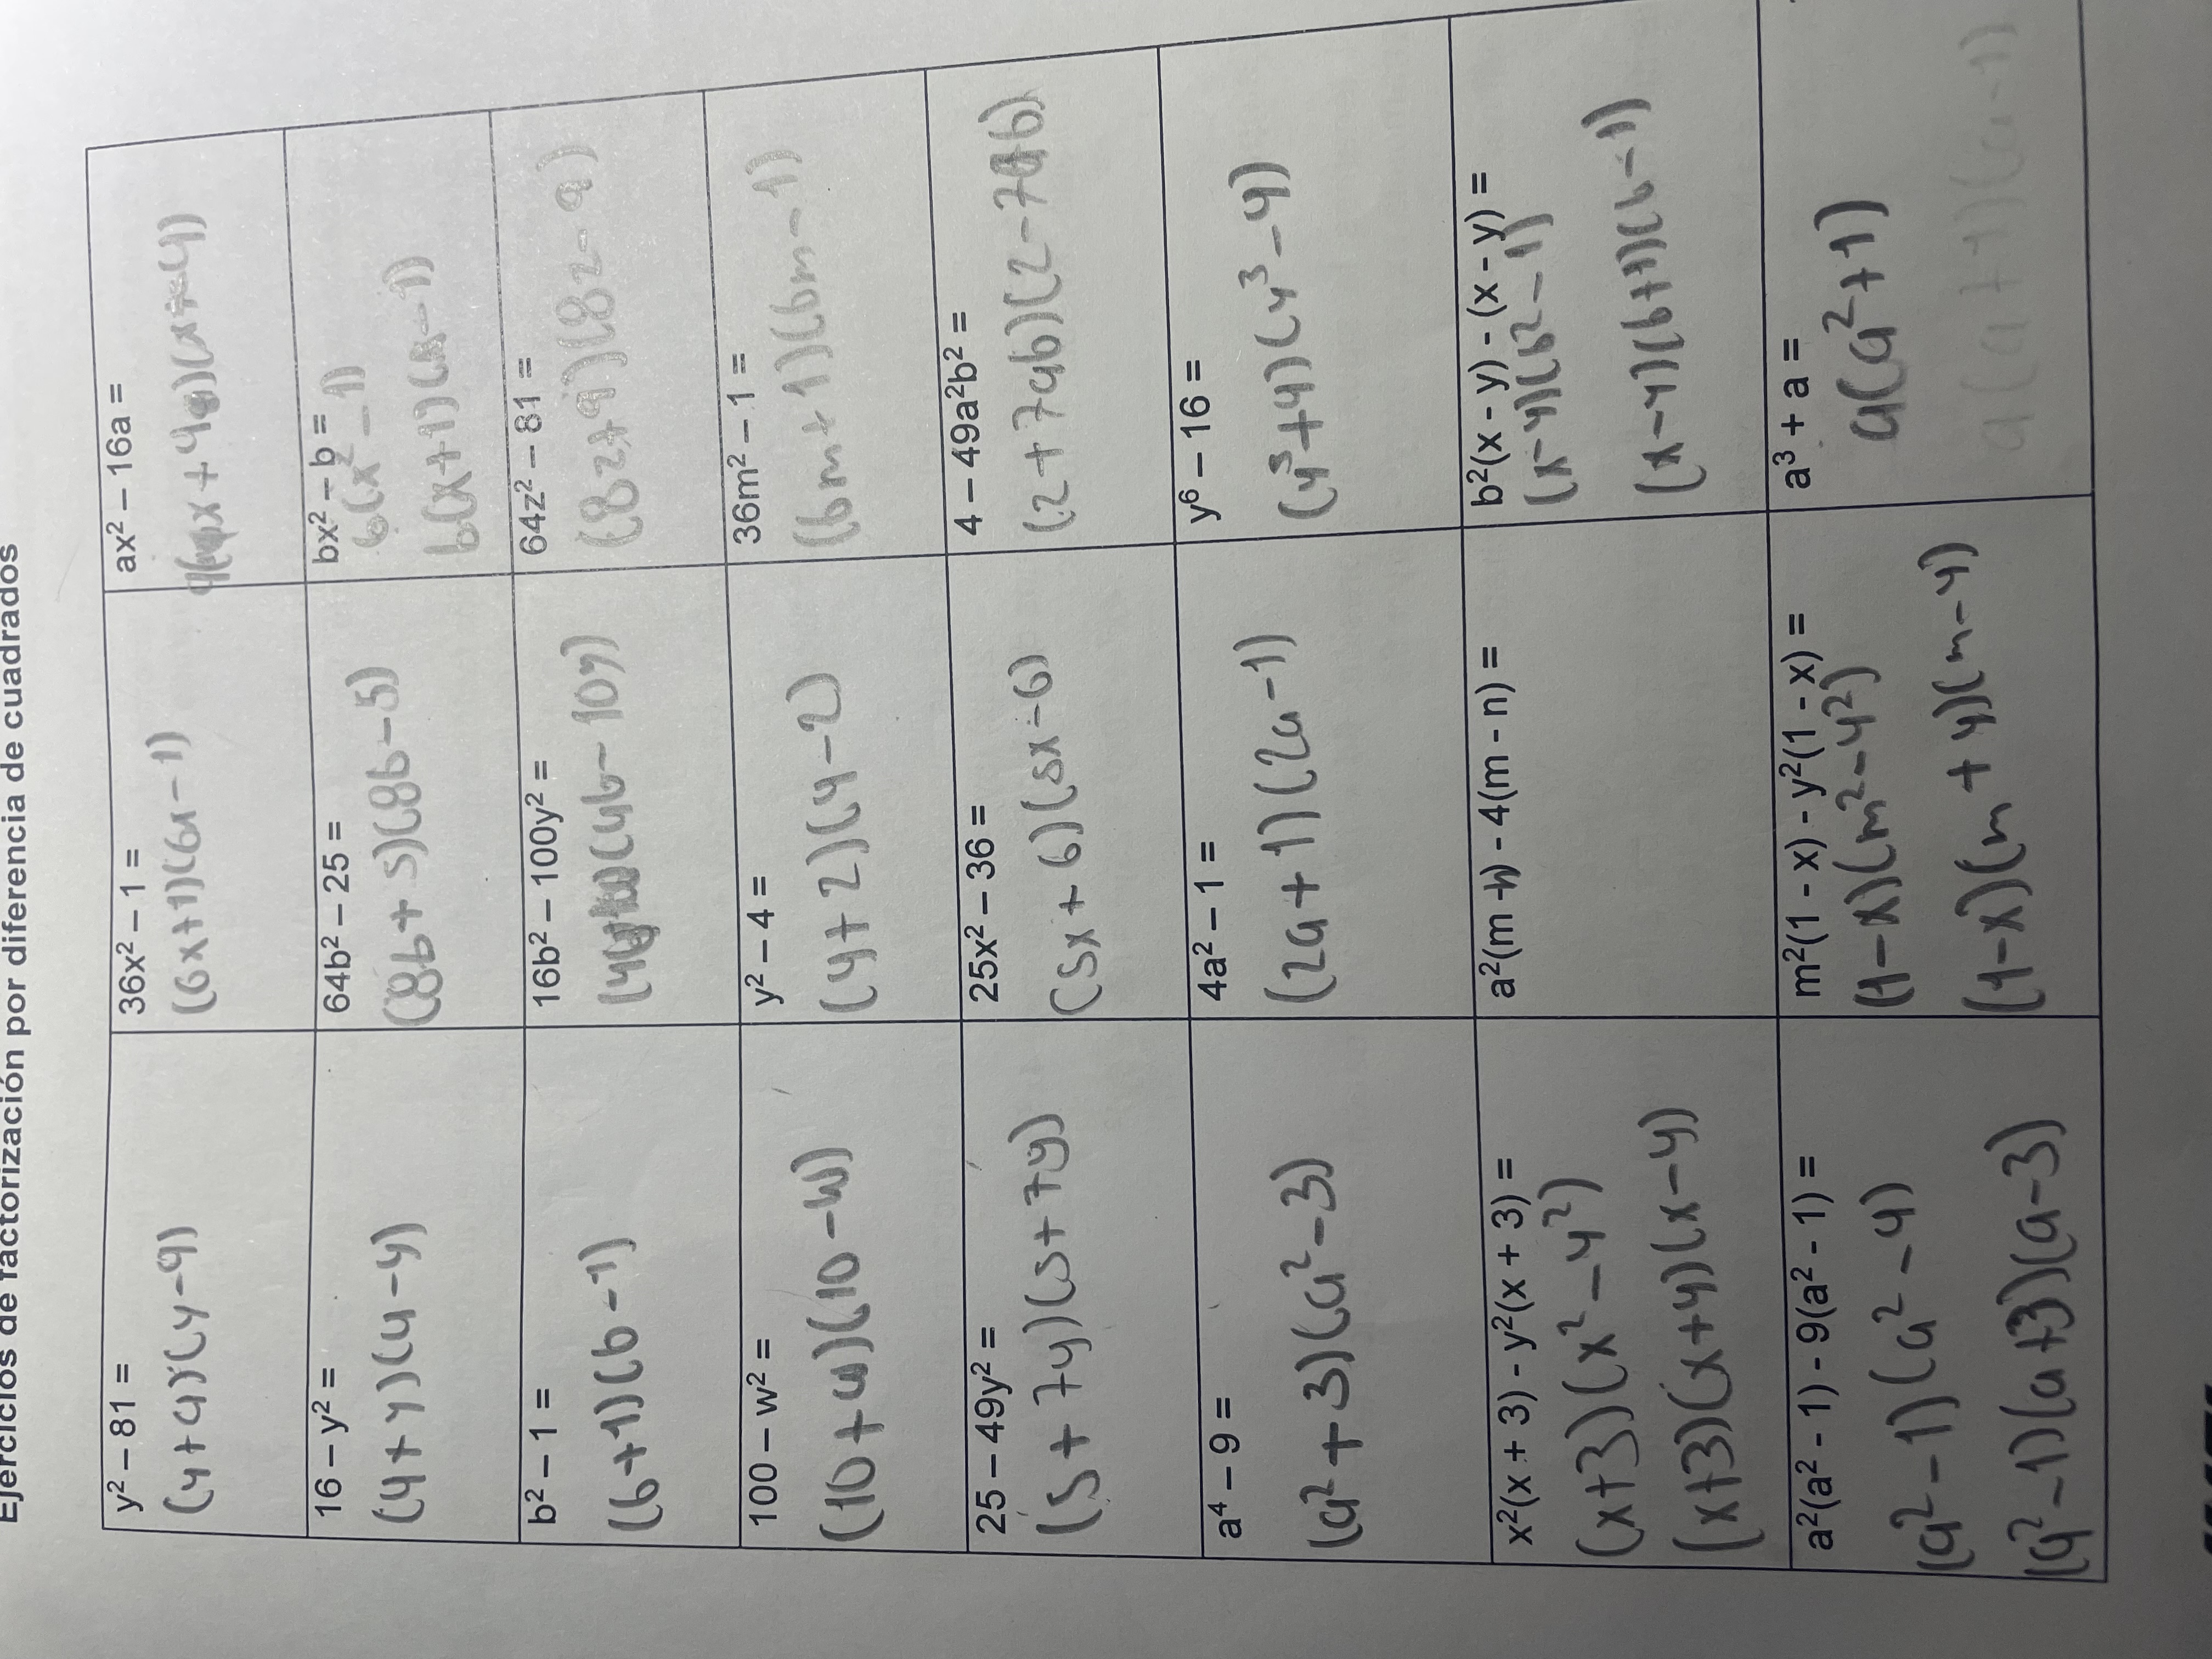 Ejercicios de factorización por diferencia de cuadrados
y² – 81 =
(y+9)(y-9)
36x² – 1 =
(6x+1)(6x-1)
ax² – 16a =
16 – y² =
(4+y)(4-y)
64b² – 25 =
(8b+5)(8b-5)
bx² – b =
b(x²-1)
b(x+1)(x-1)
b² – 1 =
(b+1)(b-1)
16b² – 100y² =
(4b-10y)
64z² – 81 =
(8z+9)(8z-9)
100 – w² =
(10+w)(10-w)
y² – 4 =
(y+2)(y-2)
36m² – 1 =
(6m+1)(6m-1)
25 – 49y² =
(5+7y)(5+7y)
25x² – 36 =
(5x+6)(5x-6)
4 – 49a²b² =
(2+7ab)(2-7ab)
a⁴ – 9 =
(a²+3)(a²-3)
4a² – 1 =
(2a+1)(2a-1)
y⁶ – 16 =
(y³+4)(y³-4)
x²(x + 3) - y²(x + 3) =
(x+3)(x²-y²)
(x+3)(x+y)(x-y)
a²(m - n) - 4(m - n) =
b²(x - y) - (x - y) =
(x-y)(b²-1)
(x-y)(b+1)(b-1)
a²(a² - 1) - 9(a² - 1) =
(a²-1)(a²-9)
(a²-1)(a+3)(a-3)
m²(1 - x) - y²(1 - x) =
(1-x)(m²-y²)
(1-x)(m+y)(m-y)
a³ + a =
a(a²+1)
a(a+1)(a-1)